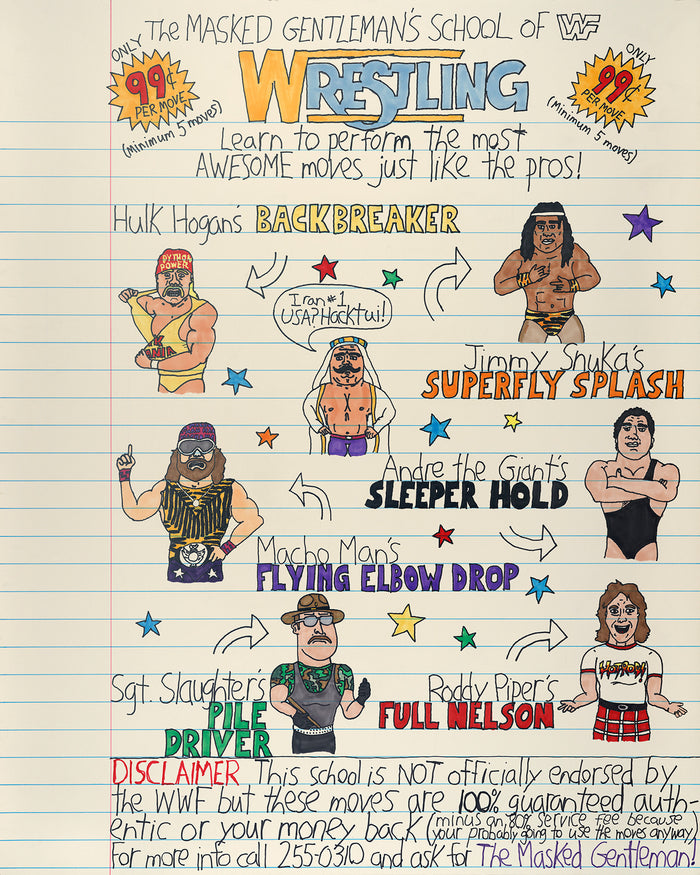 The MASKED GENTLEMAN'S SCHOOL OF WF
WRESTLING
ONLY
99¢
PER MOVE
(Minimum 5 moves)
ONLY
99¢
PER MOVE
(Minimum 5 moves)
Learn to perform the most
AWESOME moves just like the pros!
Hulk Hogan's BACKBREAKER
PYTHON
POWER
K
MANIA
Iran #1
USA? Hacktui!
Jimmy Snuka's
SUPERFLY SPLASH
Andre the Giant's
SLEEPER HOLD
Macho Man's
FLYING ELBOW DROP
Sgt. Slaughter's
PILE
DRIVER
Roddy Piper's
FULL NELSON
HOTROD!
DISCLAIMER This school is NOT officially endorsed by
the WWF but these moves are 100% guaranteed auth-
entic or your money back (minus an 80% service fee because
your probably going to use the moves anyway)
For more info call 255-0310 and ask for The Masked Gentleman!